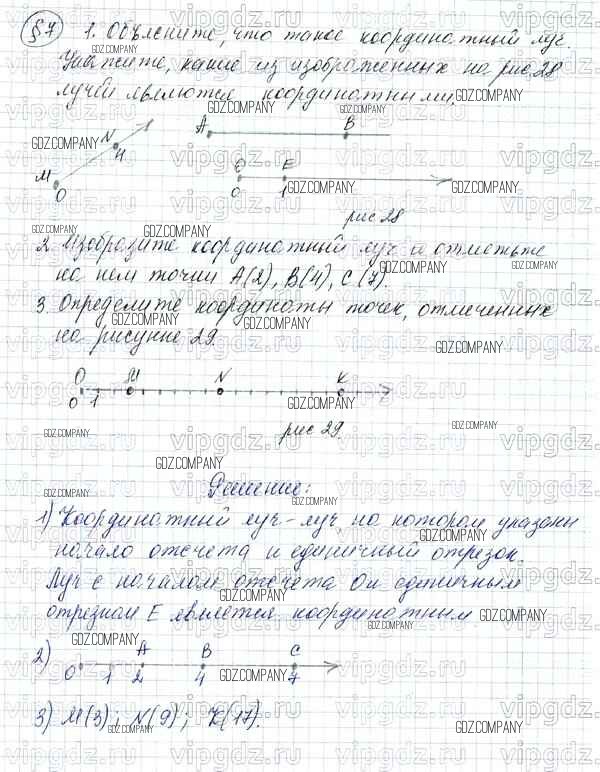 §7 1. Объясните, что такое координатный луч.
Укажите, какие из изображенных на рис. 28
лучей являются координатными.
A B
M N
O 4
O E
0 1
рис 28
2. Изобразите координатный луч и отметьте
на нем точки A(2), B(4), C(7).
3. Определите координаты точек, отмеченных
на рисунке 29.
O M N K
0 1
рис 29.
Решение:
1) Координатный луч - луч, на котором указаны
начало отсчета и единичный отрезок.
Луч с началом отсчета O и единичным
отрезком E является координатным
2) A B C
0 1 2 4 7
3) M(3); N(9); K(17).
vipgdz.ru
GDZ.COMPANY